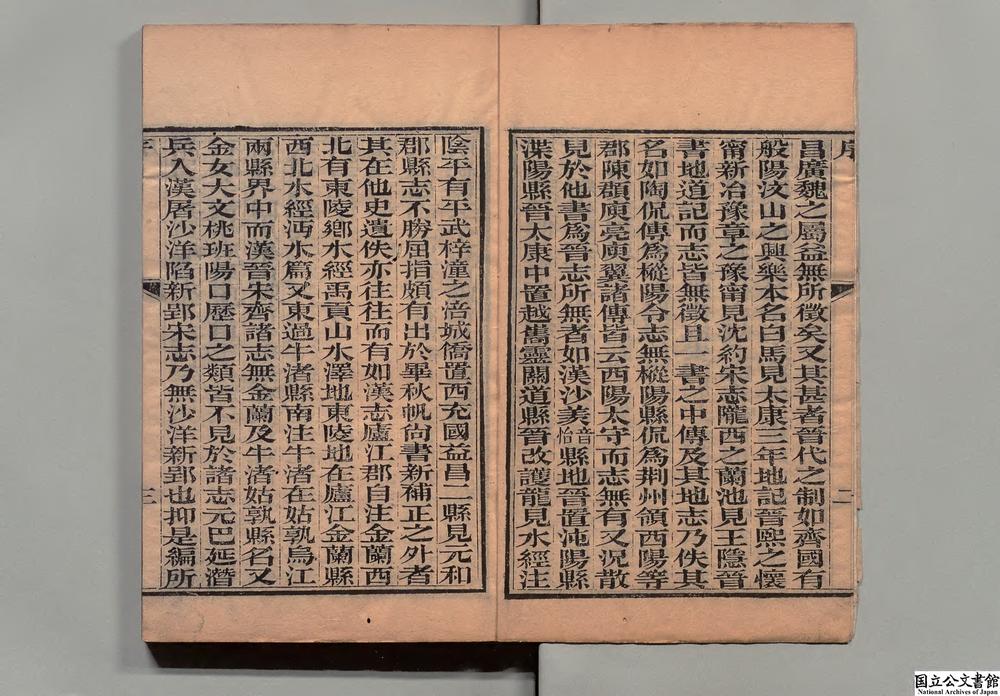 序
二
昌廣魏之屬益無所徵矣又其甚者晉代之制如齊國有
般陽汶山之興樂本名白馬見太康三年地記晉熙之懷
甯新冶豫章之豫甯見沈約宋志隴西之蘭池見王隱晉
書地道記而志皆無徵且一書之中傳及其地志乃佚其
名如陶侃傳為樅陽令志無樅陽縣侃為荆州領西陽等
郡陳頵庾亮庾翼諸傳皆云西陽太守而志無有又況散
見於他書為晉志所無者如漢沙羡音怡縣地晉置沌陽縣
漢陽縣晉太康中置越嶲靈關道縣晉改護龍見水經注
陰平有平武梓潼之涪城僑置西充國益昌二縣見元和
郡縣志不勝屈指頗有出於畢秋帆尙書新補正之外者
其在他史遺佚亦往往而有如漢志廬江郡自注金蘭西
北有東陵鄉水經禹貢山水澤地東陵地在廬江金蘭縣
西北水經沔水篇又東過牛渚縣南注牛渚在姑孰烏江
兩縣界中而漢晉朱齊諸志無金蘭及牛渚姑孰縣名又
金女大文桃班陽口歷口之類皆不見於諸志元巴延潛
兵入漢屠沙洋陷新郢宋志乃無沙洋新郢也抑是編所
三
国立公文書館
National Archives of Japan